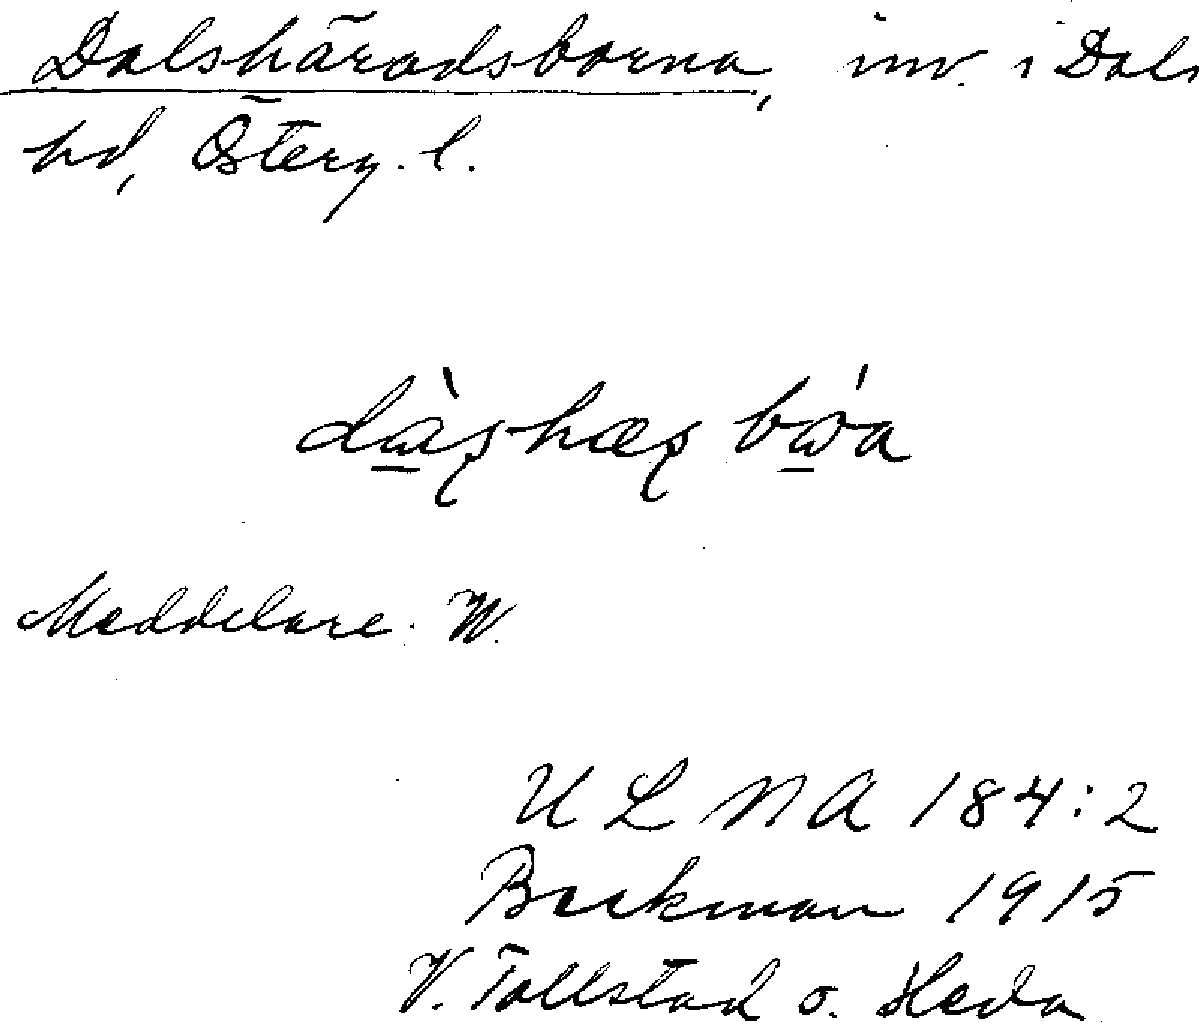 Dalshäradsborna, inv. i Dals
hd, Österg. l.
Meddelare: W.
ULMA 184:2
Backman 1915
V. Tollstad o. Heda